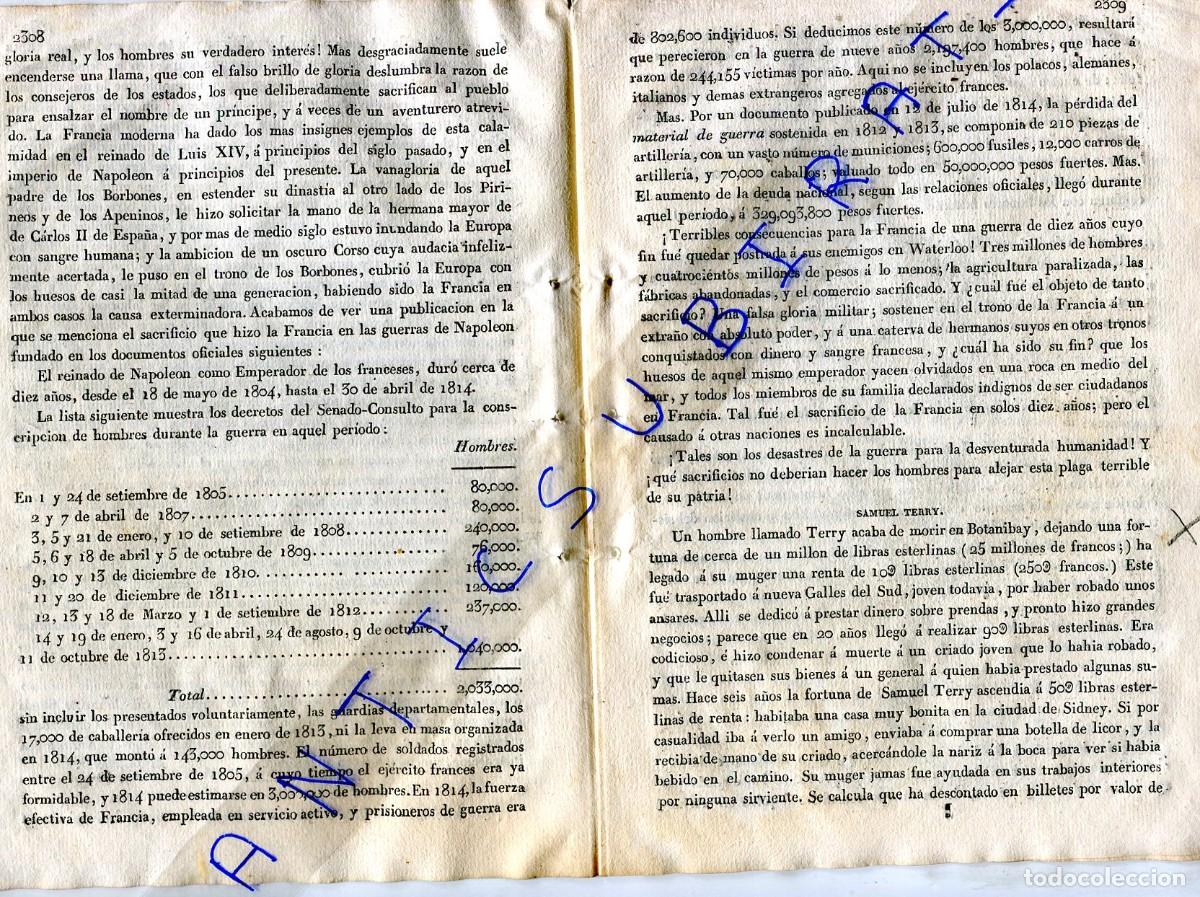 2308
gloria real, y los hombres su verdadero interés! Mas desgraciadamente suele
encenderse una llama, que con el falso brillo de gloria deslumbra la razon de
los consejeros de los estados, los que deliberadamente sacrifican al pueblo
para ensalzar el nombre de un príncipe, y á veces de un aventurero atrevi-
do. La Francia moderna ha dado los mas insignes ejemplos de esta cala-
midad en el reinado de Luis XIV, á principios del siglo pasado, y en el
imperio de Napoleon á principios del presente. La vanagloria de aquel
padre de los Borbones, en estender su dinastía al otro lado de los Piri-
neos y de los Apeninos, le hizo solicitar la mano de la hermana mayor de
de Cárlos II de España, y por mas de medio siglo estuvo inundando la Europa
con sangre humana; y la ambicion de un oscuro Corso cuya audacia infeliz-
mente acertada, le puso en el trono de los Borbones, cubrió la Europa con
los huesos de casi la mitad de una generacion, habiendo sido la Francia en
ambos casos la causa exterminadora. Acabamos de ver una publicacion en la
que se menciona el sacrificio que hizo la Francia en las guerras de Napoleon
fundado en los documentos oficiales siguientes :
El reinado de Napoleon como Emperador de los franceses, duró cerca de
diez años, desde el 18 de mayo de 1804, hasta el 30 de abril de 1814.
La lista siguiente muestra los decretos del Senado-Consulto para la cons-
cripcion de hombres durante la guerra en aquel período :
Hombres.
En 1 y 24 de setiembre de 1805........................ 80,000.
2 y 7 de abril de 1807............................ 80,000.
3, 5 y 21 de enero, y 10 de setiembre de 1808............ 240,000.
5, 6 y 18 de abril y 5 de octubre de 1809................ 76,000.
9, 10 y 13 de diciembre de 1810...................... 160,000.
11 y 20 de diciembre de 1811........................ 120,000.
12, 13 y 18 de Marzo y 1 de setiembre de 1812.......... 237,000.
14 y 19 de enero, 3 y 16 de abril, 24 de agosto, 9 de octubre y
11 de octubre de 1813.............................. 1,040,000.
Total............................ 2,033,000.
sin incluir los presentados voluntariamente, las guardias departamentales, los
17,000 de caballería ofrecidos en enero de 1813, ni la leva en masa organizada
en 1814, que montó á 143,000 hombres. El número de soldados registrados
entre el 24 de setiembre de 1805, á cuyo tiempo el ejército frances era ya
formidable, y 1814 puede estimarse en 3,000,000 de hombres. En 1814, la fuerza
efectiva de Francia, empleada en servicio activo, y prisioneros de guerra era
2309
de 802,600 individuos. Si deducimos este número de los 3,000,000, resultará
que perecieron en la guerra de nueve años 2,197,400 hombres, que hace á
razon de 244,155 víctimas por año. Aqui no se incluyen los polacos, alemanes,
italianos y demas extrangeros agregados al ejército frances.
Mas. Por un documento publicado en 12 de julio de 1814, la pérdida del
material de guerra sostenida en 1812 y 1813, se componia de 210 piezas de
artillería, con un vasto número de municiones; 600,000 fusiles, 12,000 carros de
artillería, y 70,000 caballos; valuado todo en 50,000,000 pesos fuertes. Mas.
El aumento de la denda nacional, segun las relaciones oficiales, llegó durante
aquel período, á 329,093,800 pesos fuertes.
¡Terribles consecuencias para la Francia de una guerra de diez años cuyo
fin fué quedar postrada á sus enemigos en Waterloo! Tres millones de hombres
y cuatrociéntos millones de pesos á lo menos; la agricultura paralizada, las
fábricas abandonadas, y el comercio sacrificado. Y ¿cuál fué el objeto de tanto
sacrificio? Una falsa gloria militar; sostener en el trono de la Francia á un
extraño con absoluto poder, y á una caterva de hermanos suyos en otros tronos
conquistados con dinero y sangre francesa, y ¿cuál ha sido su fin? que los
huesos de aquel mismo emperador yacen olvidados en una roca en medio del
mar, y todos los miembros de su familia declarados indignos de ser ciudadanos
en Francia. Tal fué el sacrificio de la Francia en solos diez años; pero el
causado á otras naciones es incalculable.
¡Tales son los desastres de la guerra para la desventurada humanidad! Y
¡qué sacrificios no deberian hacer los hombres para alejar esta plaga terrible
de su patria!
SAMUEL TERRY.
Un hombre llamado Terry acaba de morir en Botanibay, dejando una for-
tuna de cerca de un millon de libras esterlinas (25 millones de francos;) ha
legado á su muger una renta de 10@ libras esterlinas (250@ francos.) Este
fué trasportado á nueva Galles del Sud, joven todavia, por haber robado unos
ansares. Alli se dedicó á prestar dinero sobre prendas, y pronto hizo grandes
negocios; parece que en 20 años llegó á realizar 90@ libras esterlinas. Era
codicioso, é hizo condenar á muerte á un criado joven que lo habia robado,
y que le quitasen sus bienes á un general á quien habia prestado algunas su-
mas. Hace seis años la fortuna de Samuel Terry ascendia á 50@ libras ester-
linas de renta: habitaba una casa muy bonita en la ciudad de Sidney. Si por
casualidad iba á verlo un amigo, enviaba á comprar una botella de licor, y la
recibia de mano de su criado, acercándole la nariz á la boca para ver si habia
bebido en el camino. Su muger jamas fue ayudada en sus trabajos interiores
por ninguna sirviente. Se calcula que ha descontado en billetes por valor de
ANTICSUBIRATS
todocoleccion